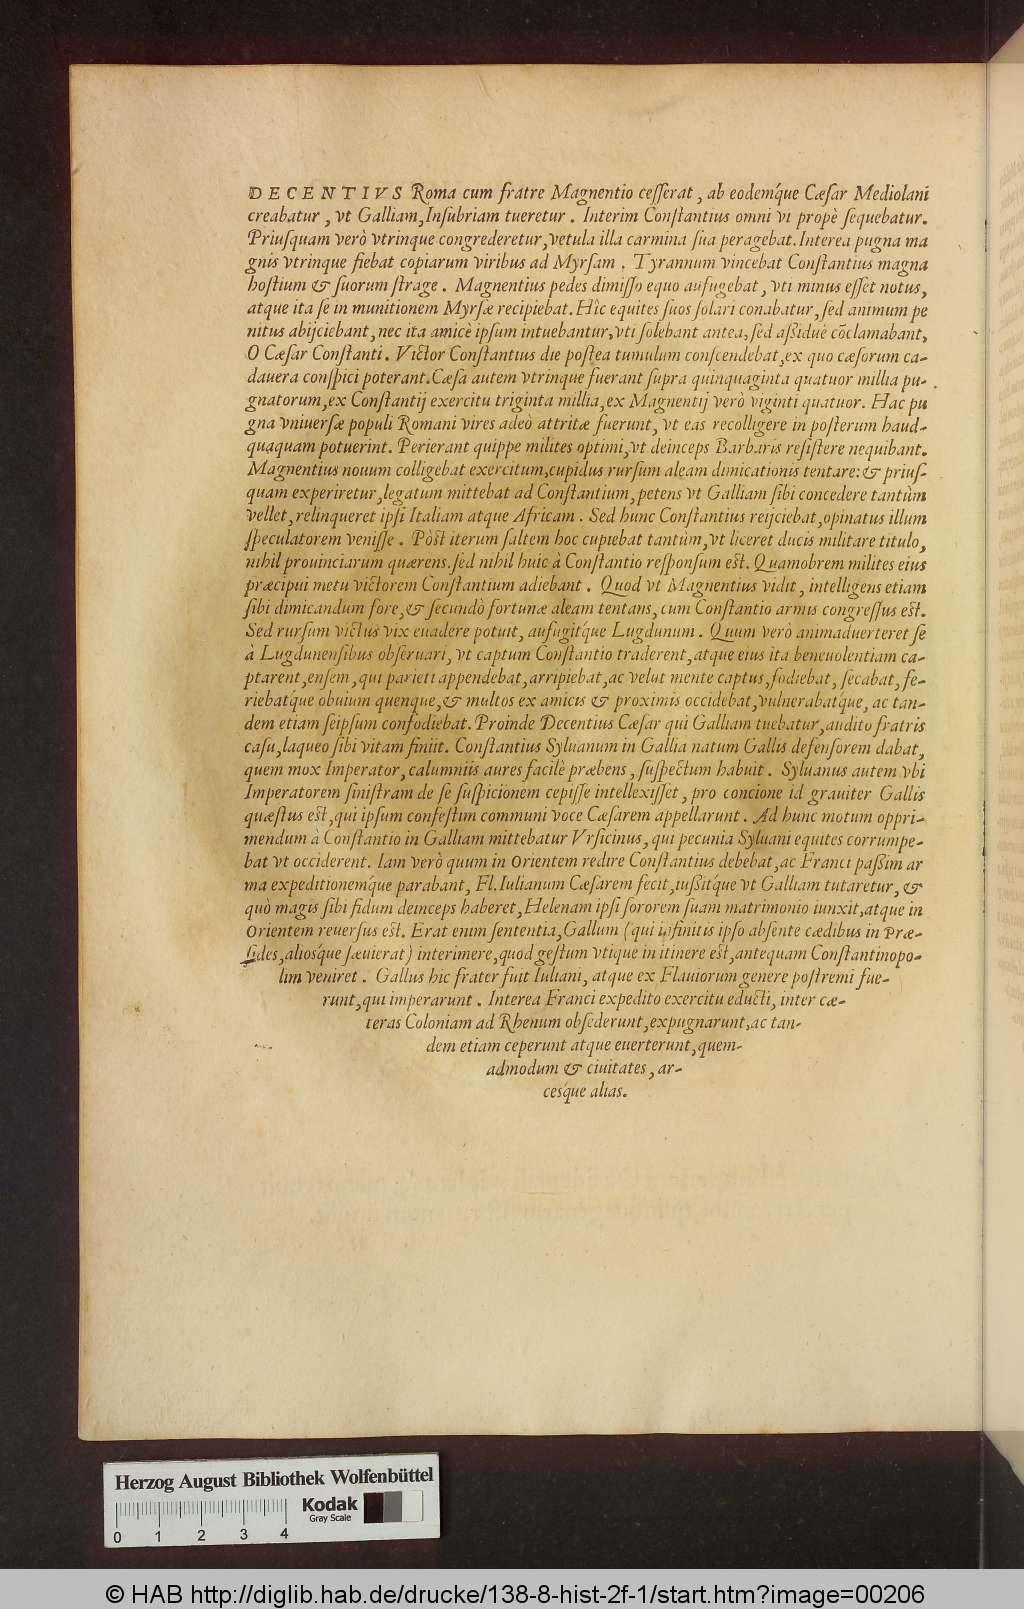 DECENTIVS Roma cum fratre Magnentio ceſſerat, ab eodemq́ue Cæſar Mediolani
creabatur, vt Galliam, Inſubriam tueretur. Interim Conſtantius omni vi propè ſequebatur.
Priuſquam verò vtrinque congrederetur, vetula illa carmina ſua peragebat. Interea pugna ma
gnis vtrinque fiebat copiarum viribus ad Myrſam. Tyrannum vincebat Conſtantius magna
hoſtium & ſuorum ſtrage. Magnentius pedes dimiſſo equo aufugebat, vti minus eſſet notus,
atque ita ſe in munitionem Myrſæ recipiebat. Hîc equites ſuos ſolari conabatur, ſed animum pe
nitus abijciebant, nec ita amicè ipſum intuebantur, vti ſolebant antea, ſed aßiduè cōclamabant,
O Cæſar Conſtanti. Victor Conſtantius die poſtea tumulum conſcendebat, ex quo cæſorum ca-
dauera conſpici poterant. Cæſa autem vtrinque fuerant ſupra quinquaginta quatuor millia pu-
gnatorum, ex Conſtantij exercitu triginta millia, ex Magnentij verò viginti quatuor. Hac pu
gna vniuerſæ populi Romani vires adeò attritæ fuerunt, vt eas recolligere in poſterum haud-
quaquam potuerint. Perierant quippe milites optimi, vt deinceps Barbaris reſiſtere nequibant.
Magnentius nouum colligebat exercitum, cupidus rurſum aleam dimicationis tentare: & priuſ-
quam experiretur, legatum mittebat ad Conſtantium, petens vt Galliam ſibi concedere tantùm
vellet, relinqueret ipſi Italiam atque Africam. Sed hunc Conſtantius reijciebat, opinatus illum
ſpeculatorem veniſſe. Pòſt iterum ſaltem hoc cupiebat tantùm, vt liceret ducis militare titulo,
nihil prouinciarum quærens. ſed nihil huic à Conſtantio reſponſum eſt. Quamobrem milites eius
præcipui metu victorem Conſtantium adiebant. Quod vt Magnentius vidit, intelligens etiam
ſibi dimicandum fore, & ſecundò fortunæ aleam tentans, cum Conſtantio armis congreſſus eſt.
Sed rurſum victus vix euadere potuit, aufugitq́ue Lugdunum. Quum verò animaduerteret ſe
à Lugdunenſibus obſeruari, vt captum Conſtantio traderent, atque eius ita beneuolentiam ca-
ptarent, enſem, qui parieti appendebat, arripiebat, ac velut mente captus, fodiebat, ſecabat, fe-
riebatq́ue obuium quenque, & multos ex amicis & proximis occidebat, vulnerabatq́ue, ac tan-
dem etiam ſeipſum confodiebat. Proinde Decentius Cæſar qui Galliam tuebatur, audito fratris
caſu, laqueo ſibi vitam finiit. Conſtantius Syluanum in Gallia natum Gallis defenſorem dabat,
quem mox Imperator, calumniis aures facilè præbens, ſuſpectum habuit. Syluanus autem vbi
Imperatorem ſiniſtram de ſe ſuſpicionem cepiſſe intellexiſſet, pro concione id grauiter Gallis
quæſtus eſt, qui ipſum confeſtim communi voce Cæſarem appellarunt. Ad hunc motum oppri-
mendum à Conſtantio in Galliam mittebatur Vrſicinus, qui pecunia Syluani equites corrumpe-
bat vt occiderent. Iam verò quum in Orientem redire Conſtantius debebat, ac Franci paßim ar
ma expeditionemq́ue parabant, Fl. Iulianum Cæſarem fecit, iußitq́ue vt Galliam tutaretur, &
quò magis ſibi fidum deinceps haberet, Helenam ipſi ſororem ſuam matrimonio iunxit, atque in
Orientem reuerſus eſt. Erat enim ſententia, Gallum (qui infinitis ipſo abſente cædibus in Præ-
ſides, alioſq́ue ſæuierat) interimere, quod geſtum vtique in itinere eſt, antequam Conſtantinopo-
lim veniret. Gallus hic frater fuit Iuliani, atque ex Flauiorum genere poſtremi fue-
runt, qui imperarunt. Interea Franci expedito exercitu educti, inter cæ-
teras Coloniam ad Rhenum obſederunt, expugnarunt, ac tan-
dem etiam ceperunt atque euerterunt, quem-
admodum & ciuitates, ar-
ceſq́ue alias.
Herzog August Bibliothek Wolfenbüttel
0 1 2 3 4
Kodak
Gray Scale
© HAB http://diglib.hab.de/drucke/138-8-hist-2f-1/start.htm?image=00206